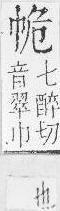 七醉切
音翠巾
也